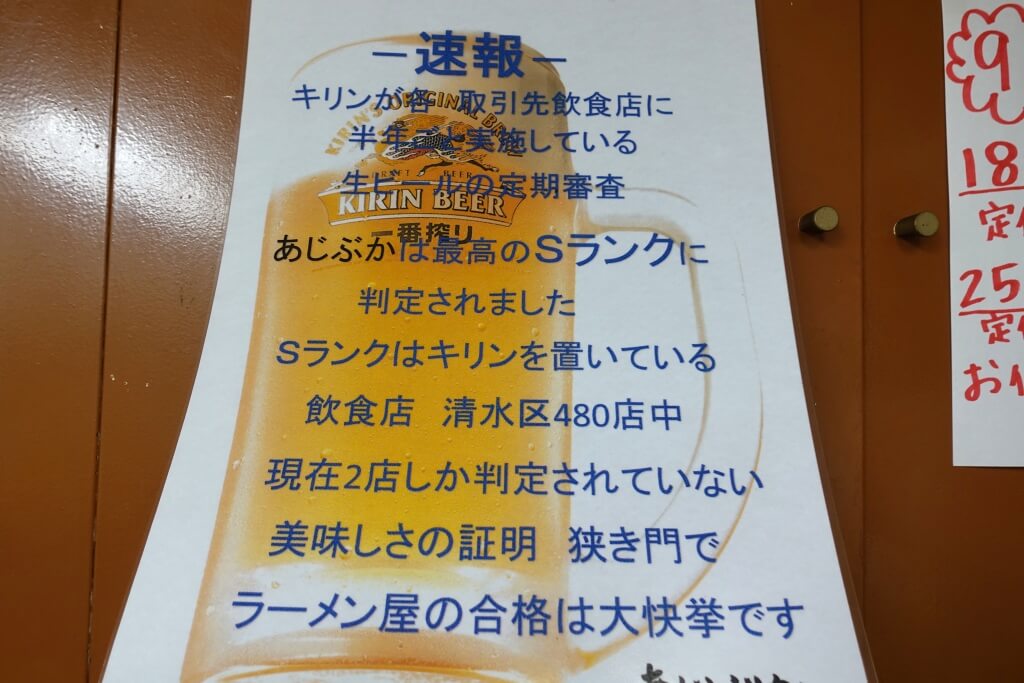 －速報－
キリンが各 取引先飲食店に
半年ごと実施している
生ビールの定期審査
KIRIN'S ORIGINAL
BEER
KIRIN BEER
一番搾り
あじぶかは最高のSランクに
判定されました
Sランクはキリンを置いている
飲食店 清水区480店中
現在2店しか判定されていない
美味しさの証明 狭き門で
ラーメン屋の合格は大快挙です
9
18
定
25
定
お